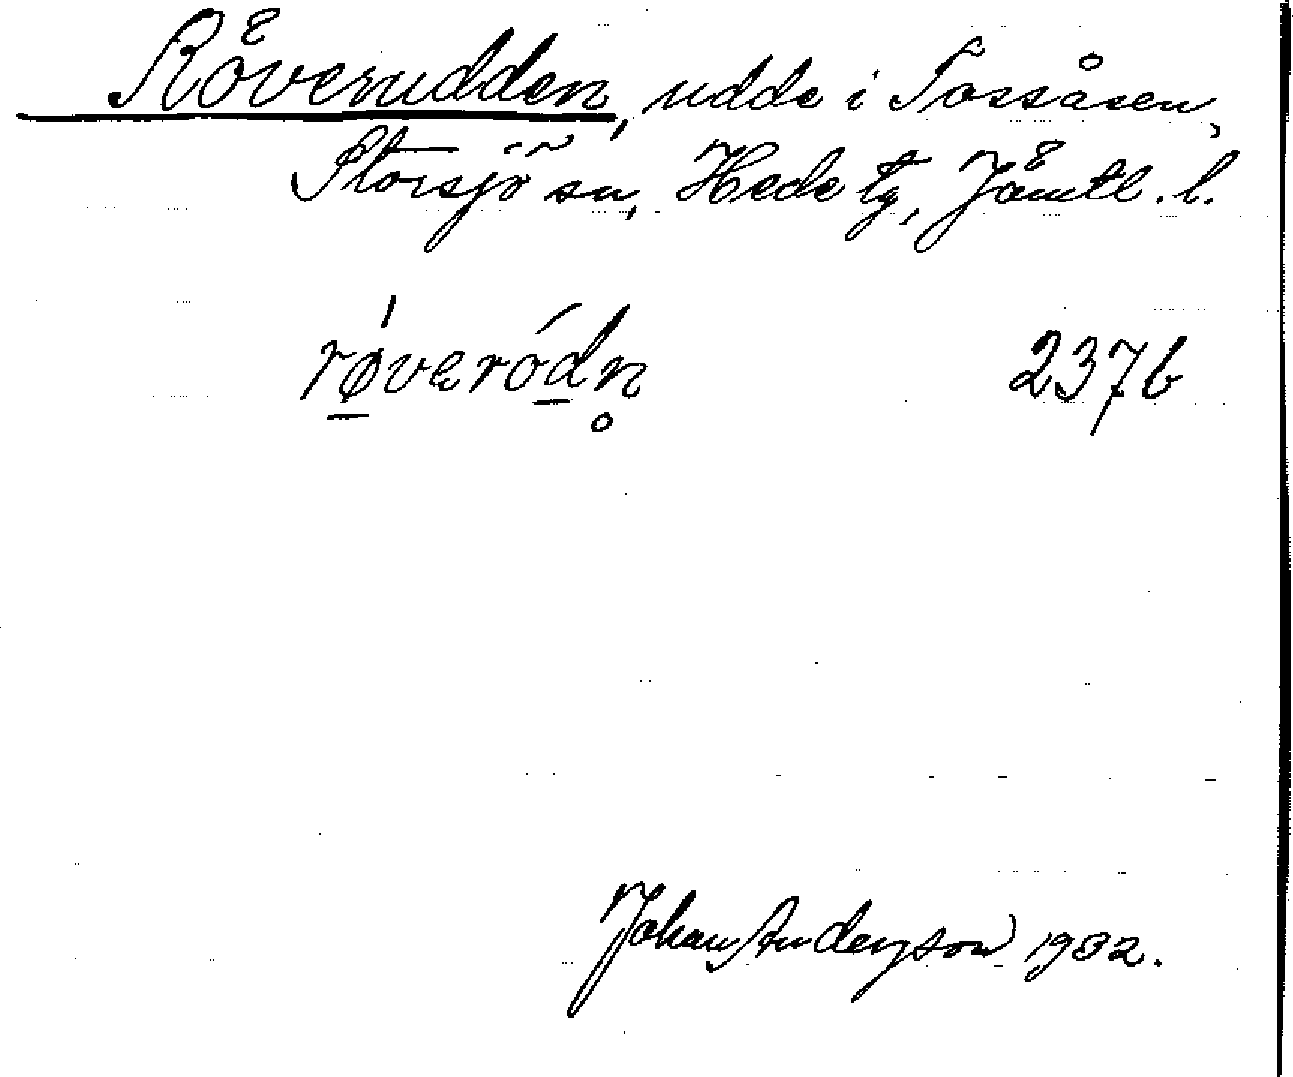 Röverudden, udde i Tossåsen,
Storsjö sn, Hede tg, Jämtl. l.
røveródn̥ 2376
Johan Anderson 1932.